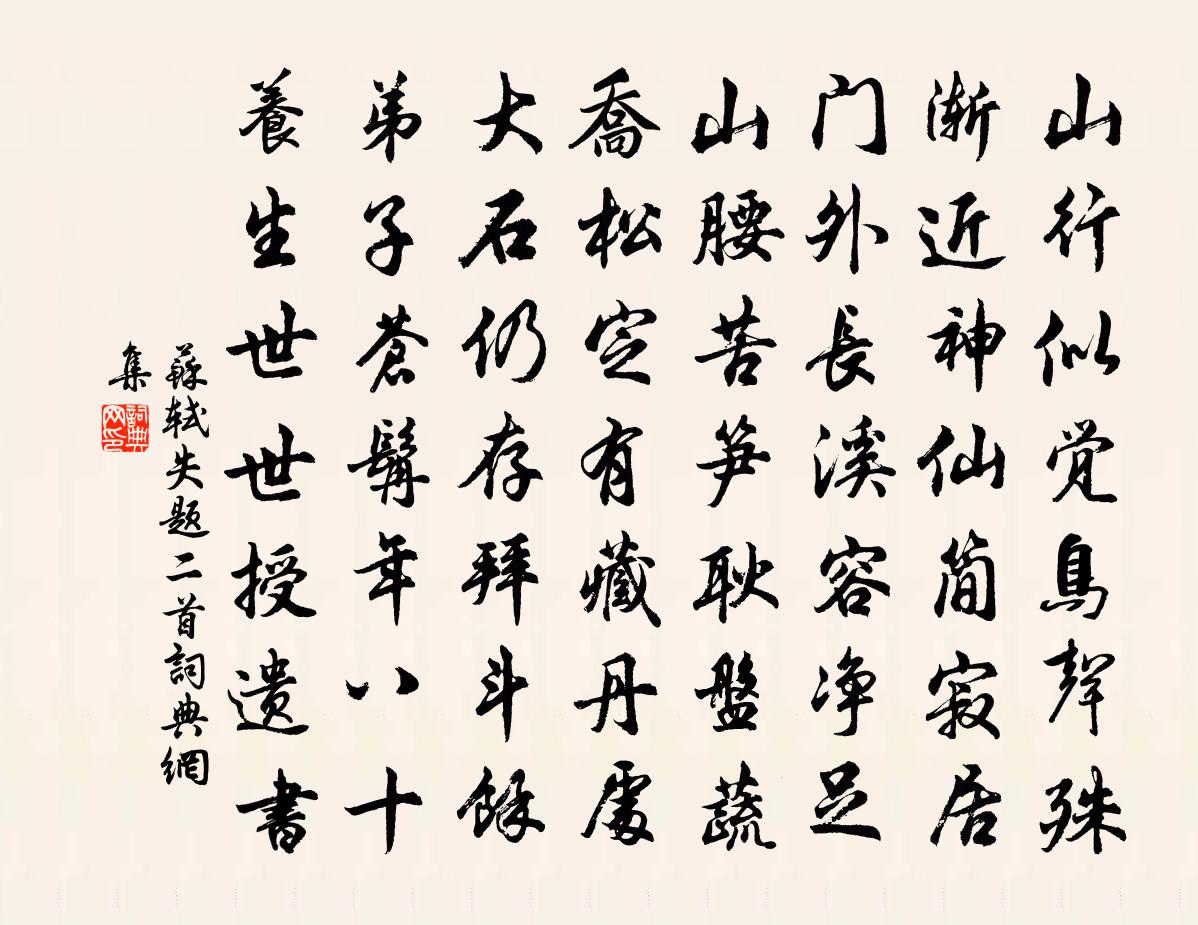 山行似觉鳥聲殊
漸近神仙简寂居
门外長溪容净足
山腰苦笋耿盤蔬
喬松定有藏丹處
大石仍存拜斗餘
弟子蒼髯年八十
養生世世授遺書
蘇軾失题二首詞典網
集
詞典网印